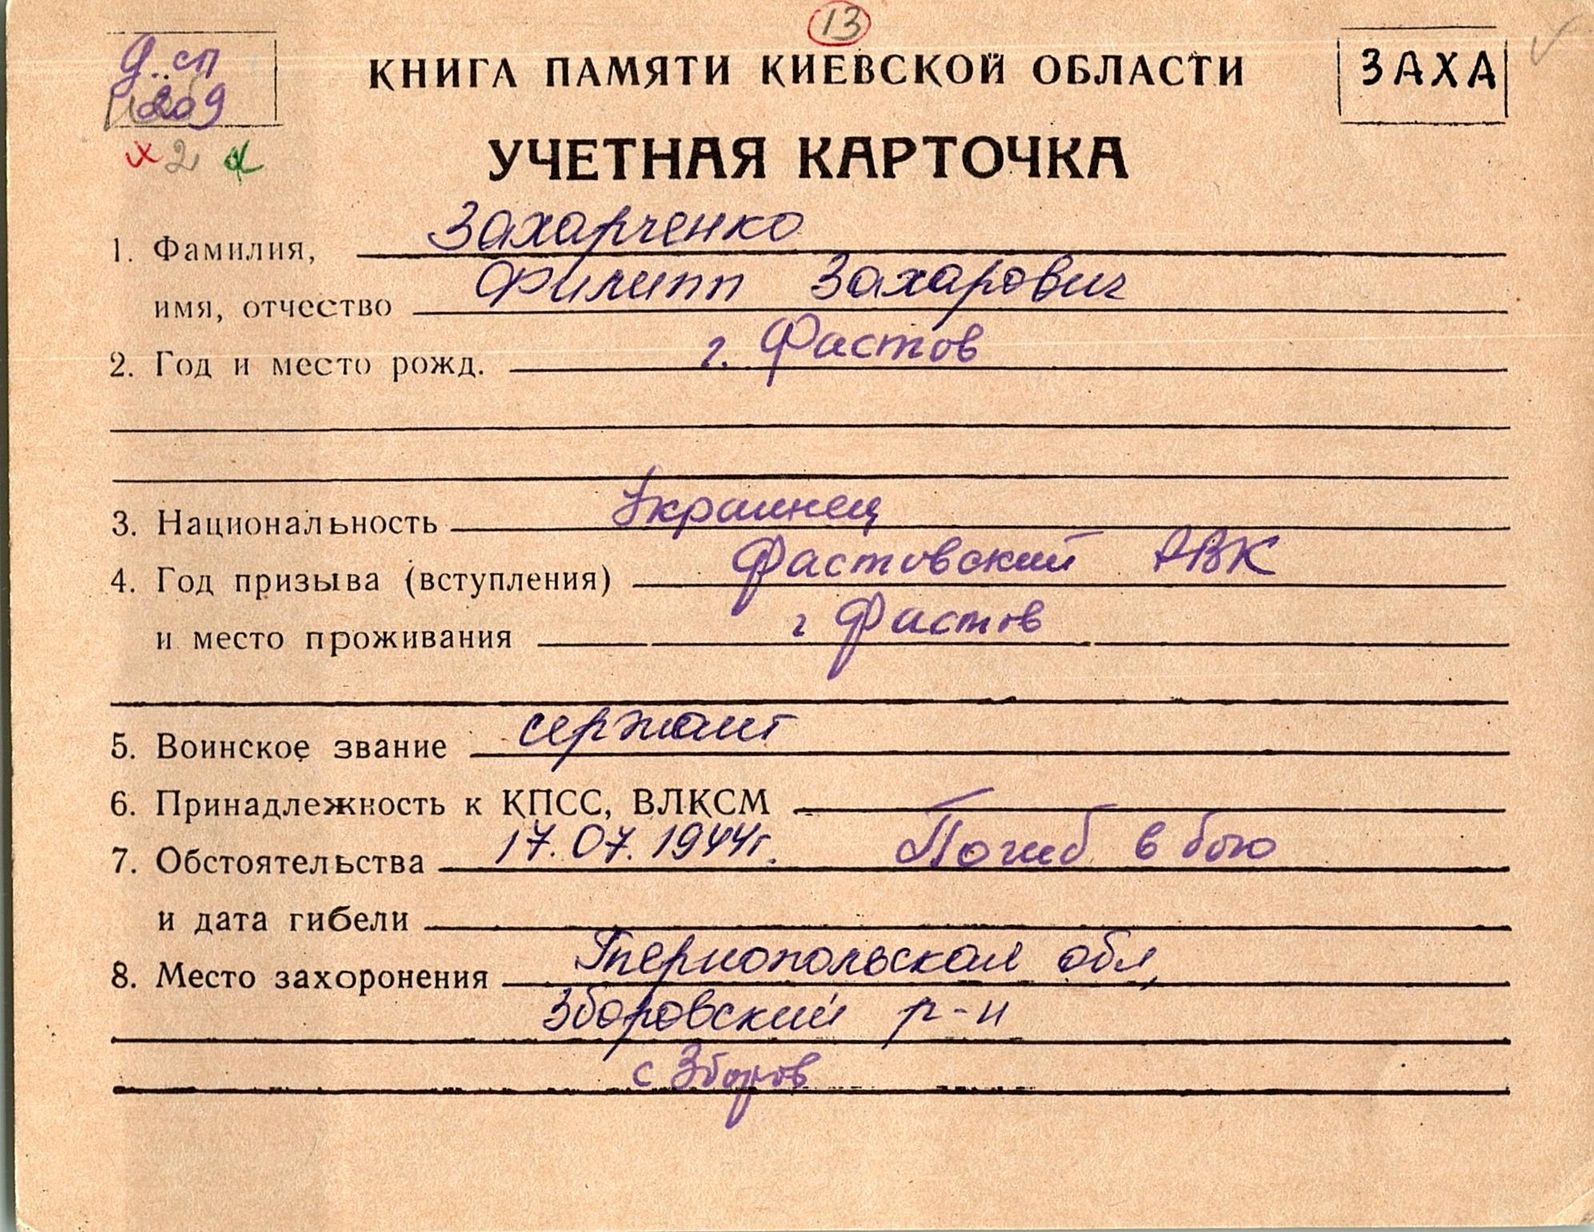 13
д.сп
209
КНИГА ПАМЯТИ КИЕВСКОЙ ОБЛАСТИ
ЗАХА
х 2
УЧЕТНАЯ КАРТОЧКА
1. Фамилия, Захарченко
имя, отчество Филипп Захарович
2. Год и место рожд. г. Фастов
3. Национальность Украинец
4. Год призыва (вступления) Фастовский РВК
и место проживания г Фастов
5. Воинское звание сержант
6. Принадлежность к КПСС, ВЛКСМ
7. Обстоятельства 17.07.1944г. Погиб в бою
и дата гибели
8. Место захоронения Тернопольская обл,
Зборовский р-н
с Зборов